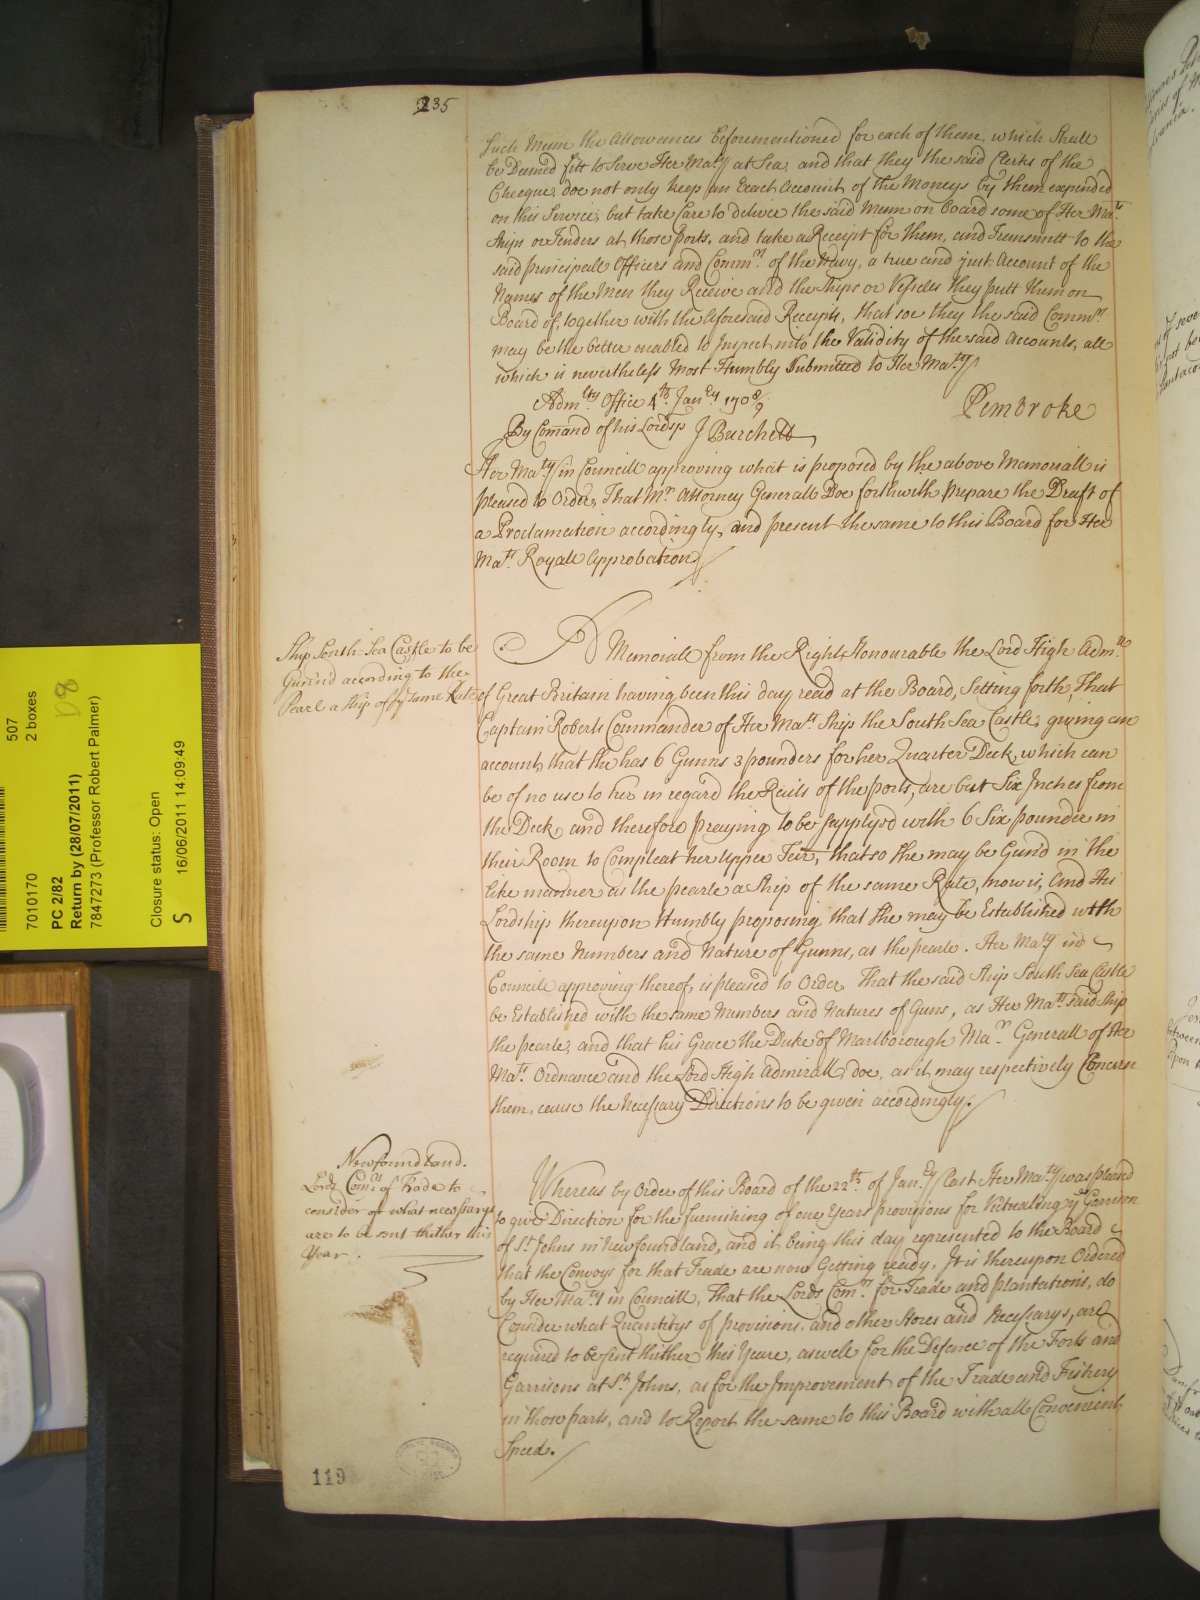 235
Such Menn the Allowances beforementioned for each of them, which Shall
be Deemed fitt to Serve Her Ma:ty at Sea, and that they the said Clerks of the
Checque, doe not only keep an Exact Account of the Moneys by them expended
on this Service, but take Care to deliver the said Menn on board some of Her Ma:ts
Ships or Tenders at those Ports, and take a Receipt for them, and Transmitt to the
said principall Officers and Comm:rs of the Navy, a true and just Account of the
Names of the Men they Receive and the Ships or Vessells they putt them on
Board of, together with the aforesaid Receipts, that soe they the said Comm:rs
may be the better enabled to Inspect into the Validity of the said Accounts, all
which is nevertheless most Humbly Submitted to Her Ma:ty
Adm:lty Office 4th Jan:ry 1708/9
Pembroke
By Comand of his Lordsp J Burchett
Her Ma:ty in Councill approving what is proposed by the above Memoriall is
pleased to Order, That Mr. Attorney Generall Doe forthwith prepare the Draft of
a Proclamation accordingly, and present the same to this Board for Her
Ma:ts Royall Approbation
Ship South-Sea Castle to be
Gunn'd according to the
Pearl a Ship of ye same Rate
A Memoriall from the Right Honourable the Lord High Adm:ll
of Great Britain having been this day read at the Board, Setting forth, That
Captain Roberts Commander of Her Ma:ts Ship the South Sea Castle, giving an
account, that she has 6 Gunns 3 pounders for her Quarter Deck, which can
be of no use to her in regard the Rails of the ports, are but Six Inches from
the Deck, and therefore praying to be supplyed with 6 Six pounder in
their Room to Compleat her upper Teir, that so she may be Gun'd in the
like manner as the pearle a Ship of the same Rate, now is, And His
Lordship thereupon Humbly proposing that she may be Established with
the same Numbers and Nature of Gunns, as the pearle. Her Ma:ty in
Councill approving thereof, is pleased to Order That the said Ship South Sea Castle
be Established with the same Numbers and Natures of Guns, as Her Ma:ts said Ship
the pearle, and that his Grace the Duke of Marlborough Ma:r Generall of Her
Ma:ts Ordnance and the Lord High Admirall, doe, as it may respectively Concern
them, cause the Necessary Directions to be given accordingly.
Newfoundland.
Lords Com:rs of Trade to
consider of what necessarys
are to be sent thither this
Year.
Whereas by Order of this Board of the 22th of Jan:ry Last Her Ma:ty was pleased
to give Direction for the furnishing of one Years provisions for Victualing ye Garrison
of St. Johns in Newfoundland, and it being this day represented to the Board
that the Convoys for that Trade are now Getting ready, It is thereupon Ordered
by Her Ma:ty in Councill, That the Lords Com:rs for Trade and plantations, do
Consider what Quantitys of provisions, and other Stores and Necessarys, are
required to be sent thither this Yeare, as well for the Defence of the Forts and
Garrisons at St. Johns, as for the Improvement of the Trade and Fishery
in those parts, and to Report the same to this Board with all Convenient
Speed.
119
507
2 boxes
D8
7010170
PC 2/82
Return by (28/07/2011)
7847273 (Professor Robert Palmer)
Closure status: Open
S
16/06/2011 14:09:49